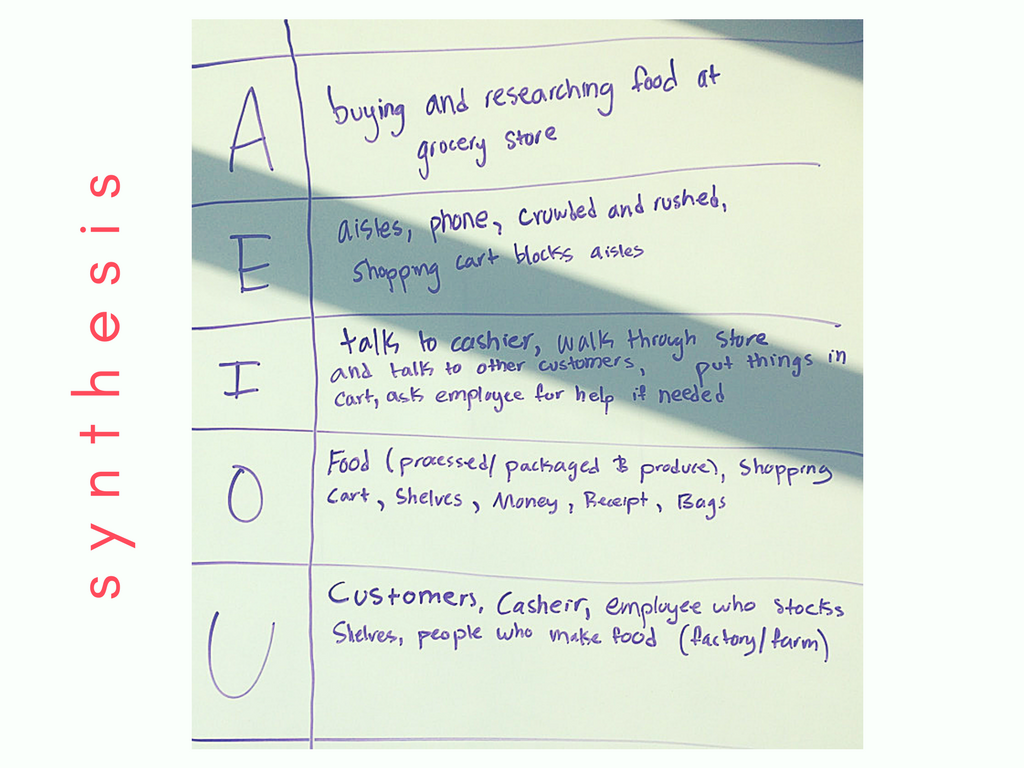 synthesis
A
buying and researching food at
grocery store
E
aisles, phone, crowded and rushed,
shopping cart blocks aisles
I
talks to cashier, walks through store
and talks to other customers, put things in
cart, ask employee for help if needed
O
Food (processed/packaged & produce), Shopping
Cart, Shelves, Money, Receipt, Bags
U
Customers, Casheir, employee who stocks
Shelves, people who make food (factory/farm)